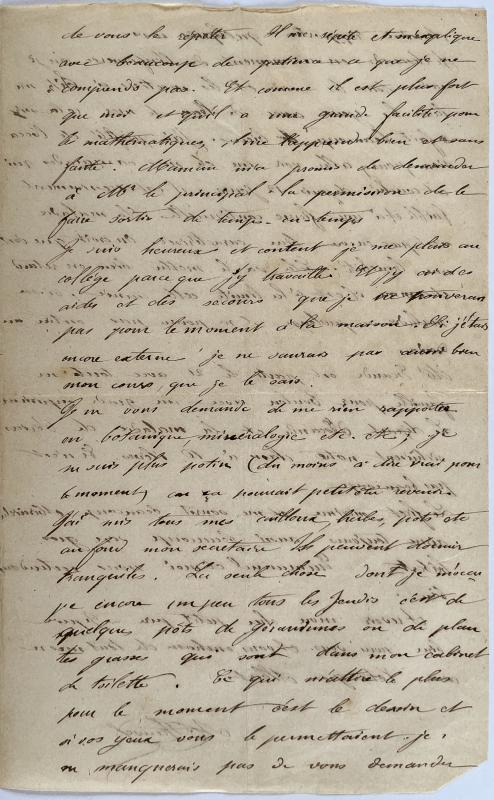 de vous le répéter. Il me répète et m'explique
avec beaucoup de patience ce que je ne
comprends pas. Et comme il est plus fort
que moi et qu'il a une grande facilité pour
les mathématiques, apprend bien et sans
faute. Maman m'a promis de demander
à Mr le principal la permission de le
faire sortir de temps-en-temps
Je suis heureux et content je me plais au
collège parce que j'y travaille. J'y ai des
aides et des secours que je ne trouverais
pas pour le moment à la maison. Si j'étais
encore externe je ne saurais pas aussi bien
mon cours, que je le sais.
Je vous demande de me rien rapporter
en botanique, minéralogie etc. etc; je
ne suis plus (du moins à dire vrai pour
le moment) car ça pourrait peut être revenir.
J'ai mis tous mes cailloux, herbes, pots etc
au fond mon secretaire ils peuvent dormir
tranquilles. La seule chose dont je m'occu
pe encore un peu tous les Jeudis c'est de
quelques pots de Géraniums ou de plan
tes grasses qui sont dans mon cabinet
de toilette. Ce qui le plus
pour le moment c'est le dessin et
si vos yeux vous le permettaient je
ne manquerais pas de vous demander